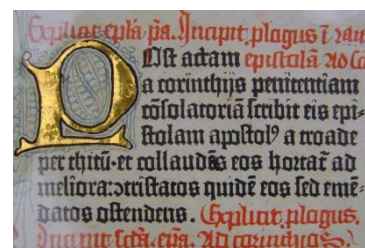 Explicit epl̃a p̃a. Incipit plogus ĩ
Post actam epistolã ad Co
a corinthijs penitentiam
cõsolatoriã scribit eis epi-
stolam apostolꝰ a troade
per thitũ· et collaudãs eos hortat̃ ad
meliora: ↄtristatos quidẽ eos sed emẽ-
datos ostendens. Explicit plogus.
Incipit scd̃a ep̃a. Ad corinthios